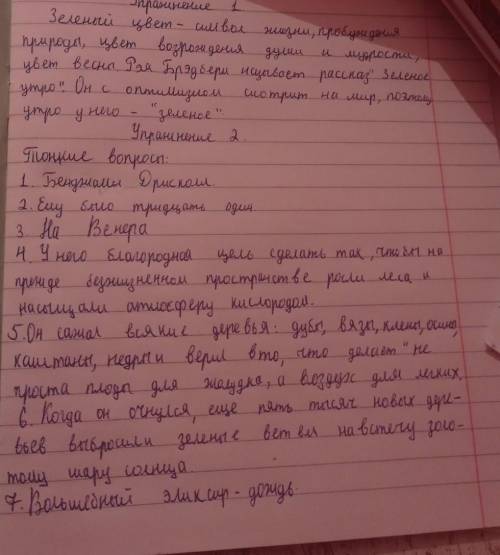 Упражнение 1
Зеленый цвет - символ жизни, пробуждения
природы, цвет возрождения души и мудрости,
цвет весны. Рэя Брэдбери называет рассказ "Зеленое
утро". Он с оптимизмом смотрит на мир, поэтому
утро у него - "зеленое"
Упражнение 2.
Тонкие вопросы:
1. Бенджамен Дрисколл.
2. Ему было тридцать один.
3. На Венера
4. У него благородная цель сделать так, чтобы на
прежде безжизненном пространстве росли леса и
насыщали атмосферу кислородом.
5. Он сажал всякие деревья: дубы, вязы, клены, осины,
каштаны, кедры и верил в то, что делает "не
проста плоды для желудка, а воздух для легких.
6. Когда он очнулся, еще пять тысяч новых дере-
вьев выбросили зеленые ветви навстечу золо-
тому шару солнца.
7. Волшебный эликсир - дождь.